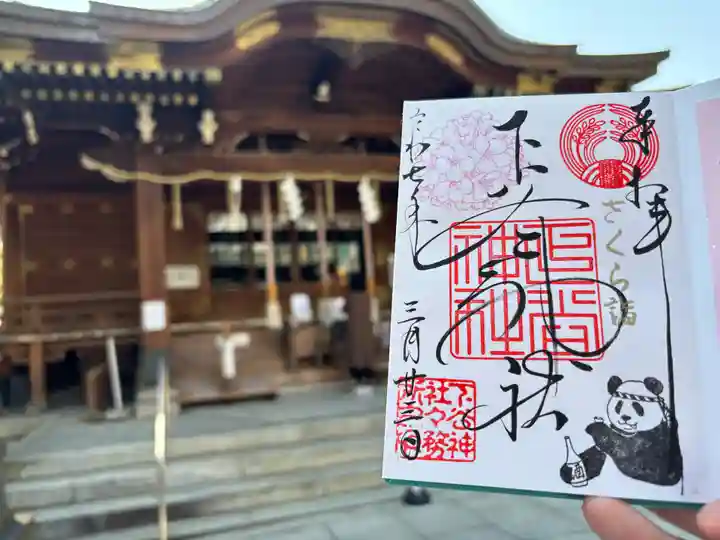 奉拝
さくら詣
下谷神社
下谷神社
下谷神
社々務
所之印
令和七年
三月廿三日
酒